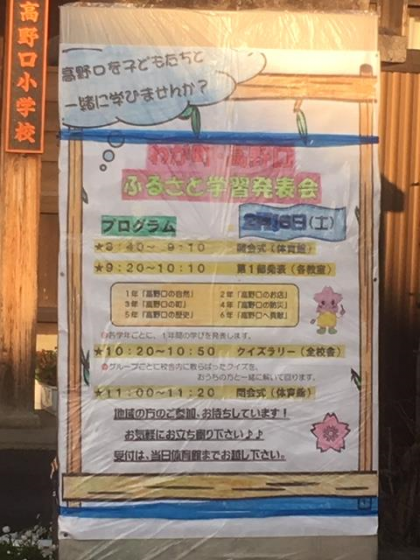 高野口小学校
高野口を子どもたちと
一緒に学びませんか?
わが町・高野口
ふるさと学習発表会
プログラム 2月16日(土)
★8:40~9:10 開会式(体育館)
★9:20~10:10 第1部発表(各教室)
1年「高野口の自然」 2年「高野口のお店」
3年「高野口の町」 4年「高野口の防災」
5年「高野口の歴史」 6年「高野口へ貢献」
各学年ごとに、1年間の学びを発表します。
★10:20~10:50 クイズラリー(全校舎)
グループごとに校舎内に散らばったクイズを、
おうちの方と一緒に解いて回ります。
★11:00~11:20 閉会式(体育館)
地域の方のご参加、お待ちしています!
お気軽にお立ち寄り下さい♪♪
受付は、当日体育館までお越し下さい。